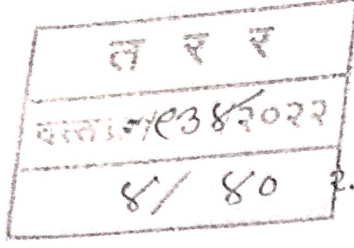 त र र
दस्त क्र. १९३४/२०२२
४/ ४० २.